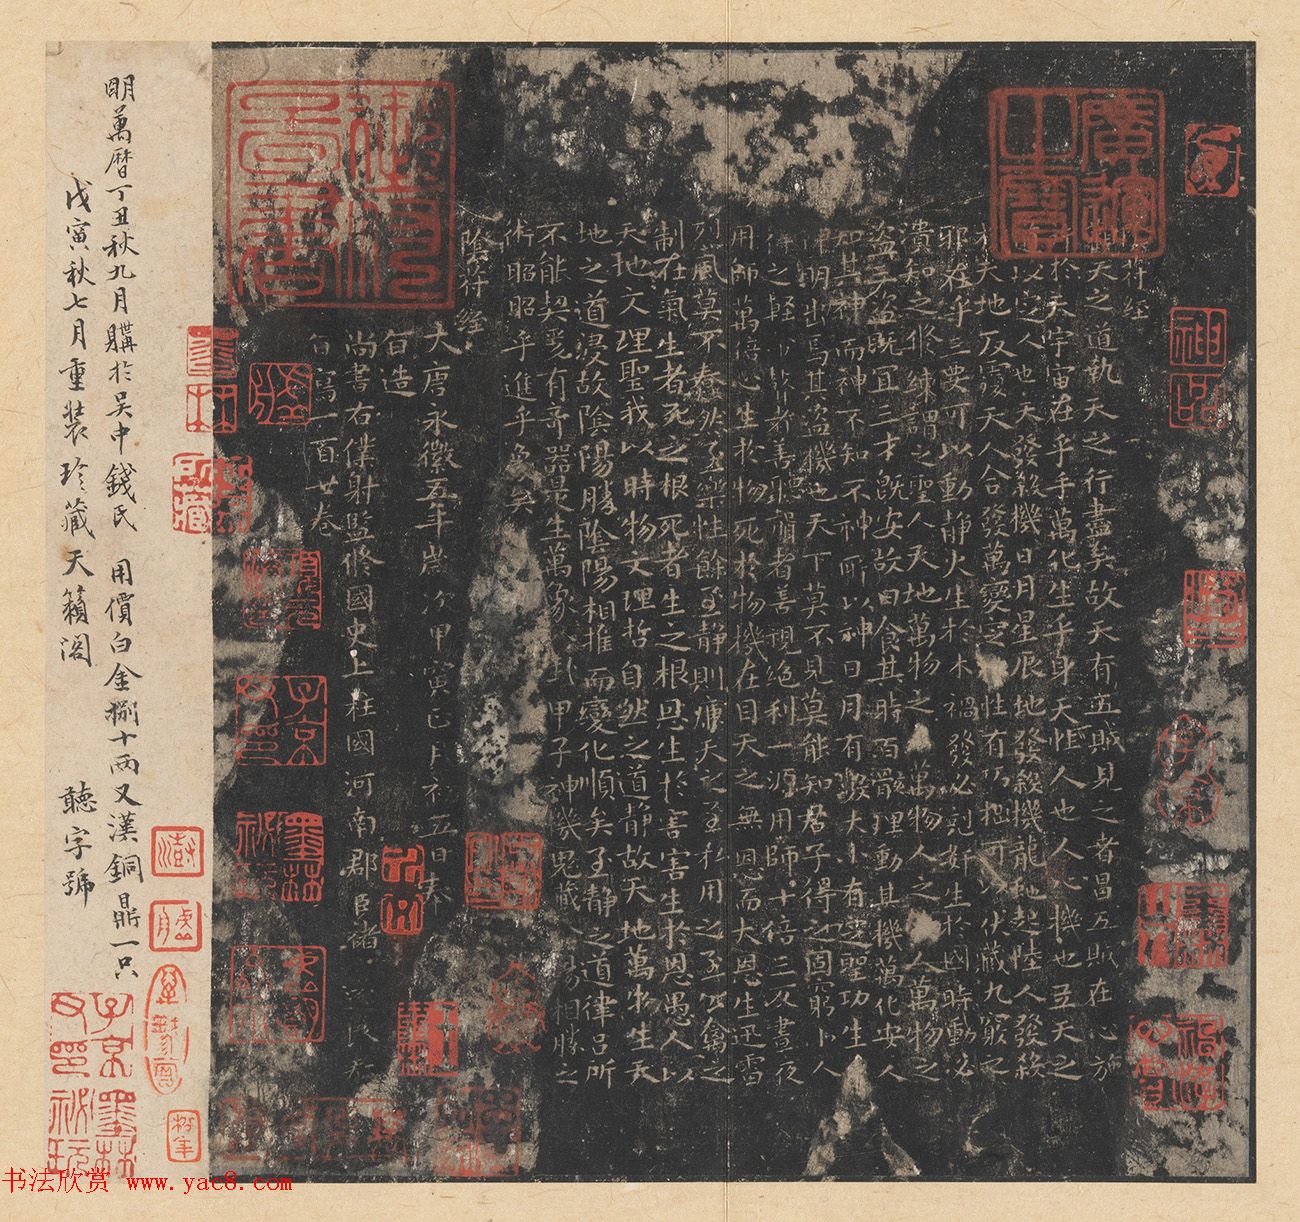 符經
天之道執天之行盡矣故天有五賊見之者昌五賊在心施
於天宇宙在乎手萬化生乎身天性人也人心機也立天之
以定人也天發殺機日月星辰地發殺機龍蛇起陸人發殺
天地反覆天人合發萬變定性有巧拙可以伏藏九竅之
邪在乎三要可以動靜火生於木禍發必剋奸生於國時動必
潰知之修練謂之聖人天地萬物之萬物人之人萬物之
盜三盜既宜三才既安故曰食其時百骸理動其機萬化安人
知其神而神不知不神所以神日月有數大小有定聖功生
明出焉其盜機也天下莫不見莫能知君子得之固窮小人
得之輕命瞽者善聽聾者善視絕利一源用師十倍三反晝夜
用師萬倍心生於物死於物機在目天之無恩而大恩生迅雷
烈風莫不蠢然至樂性餘至靜則廉天之至私用之至公禽之
制在氣生者死之根死者生之根恩生於害害生於恩愚人以
天地文理聖我以時物文理哲自然之道靜故天地萬物生天
地之道浸故陰陽勝陰陽相推而變化順矣至靜之道律呂所
不能契爰有奇器是生萬象八卦甲子神機鬼藏陰陽相勝之
術昭昭乎進乎象矣
陰符經
大唐永徽五年歲次甲寅正月初五日奉
旨造
尚書右僕射監修國史上柱國河南郡臣褚遂良奉
旨寫一百廿卷
明萬曆丁丑秋九月購於吳中錢氏 用價白金捌十兩又漢銅鼎一只
戊寅秋七月重裝珍藏天籟閣 聽字號
廣運之寶
神品
子京
墨林秘玩
书法欣赏 www.yac8.com